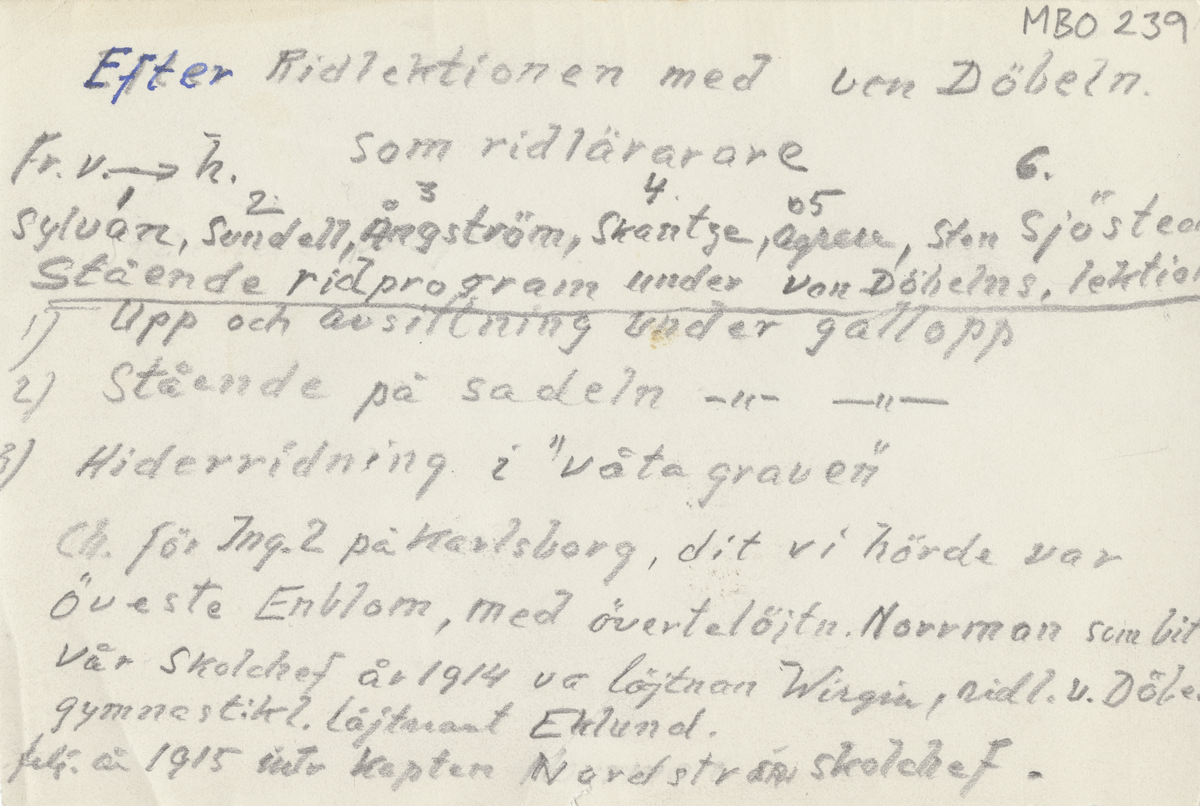 MBO 239
Efter Ridlektionen med von Döbeln.
Fr. v. → h. som ridlärarare 6.
1 2. 3 4. 5
Sylván, Sundell, Ångström, Skantze, Agrell, Sten Sjöstedt
Stående ridprogram under von Döbelns, lektion
1) Upp och avsittning under gallopp
2) Stående på sadeln -"- —"—
3) Hiderridning i "våta graven"
Ch. för Ing. 2 på Karlsborg, dit vi hörde var
öveste Enblom, med övertelöjtn. Norrman som bit
vår Skolchef år 1914 va löjtnan Wirgin, ridl. v. Döbe
gymnastikl. löjtnant Eklund.
följ. å 1915 Kapten Nordström skolchef.